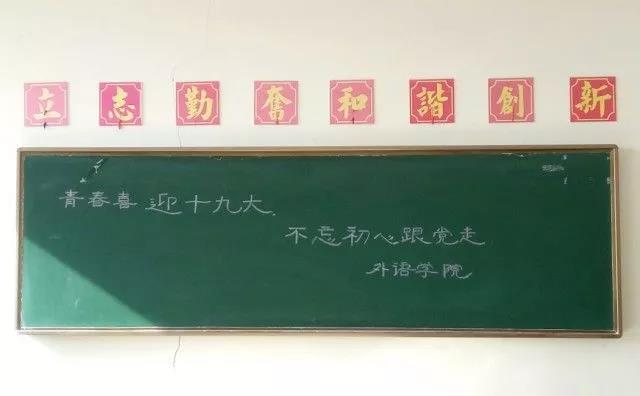 立志勤奮和諧創新
青春喜迎十九大
不忘初心跟党走
外语学院